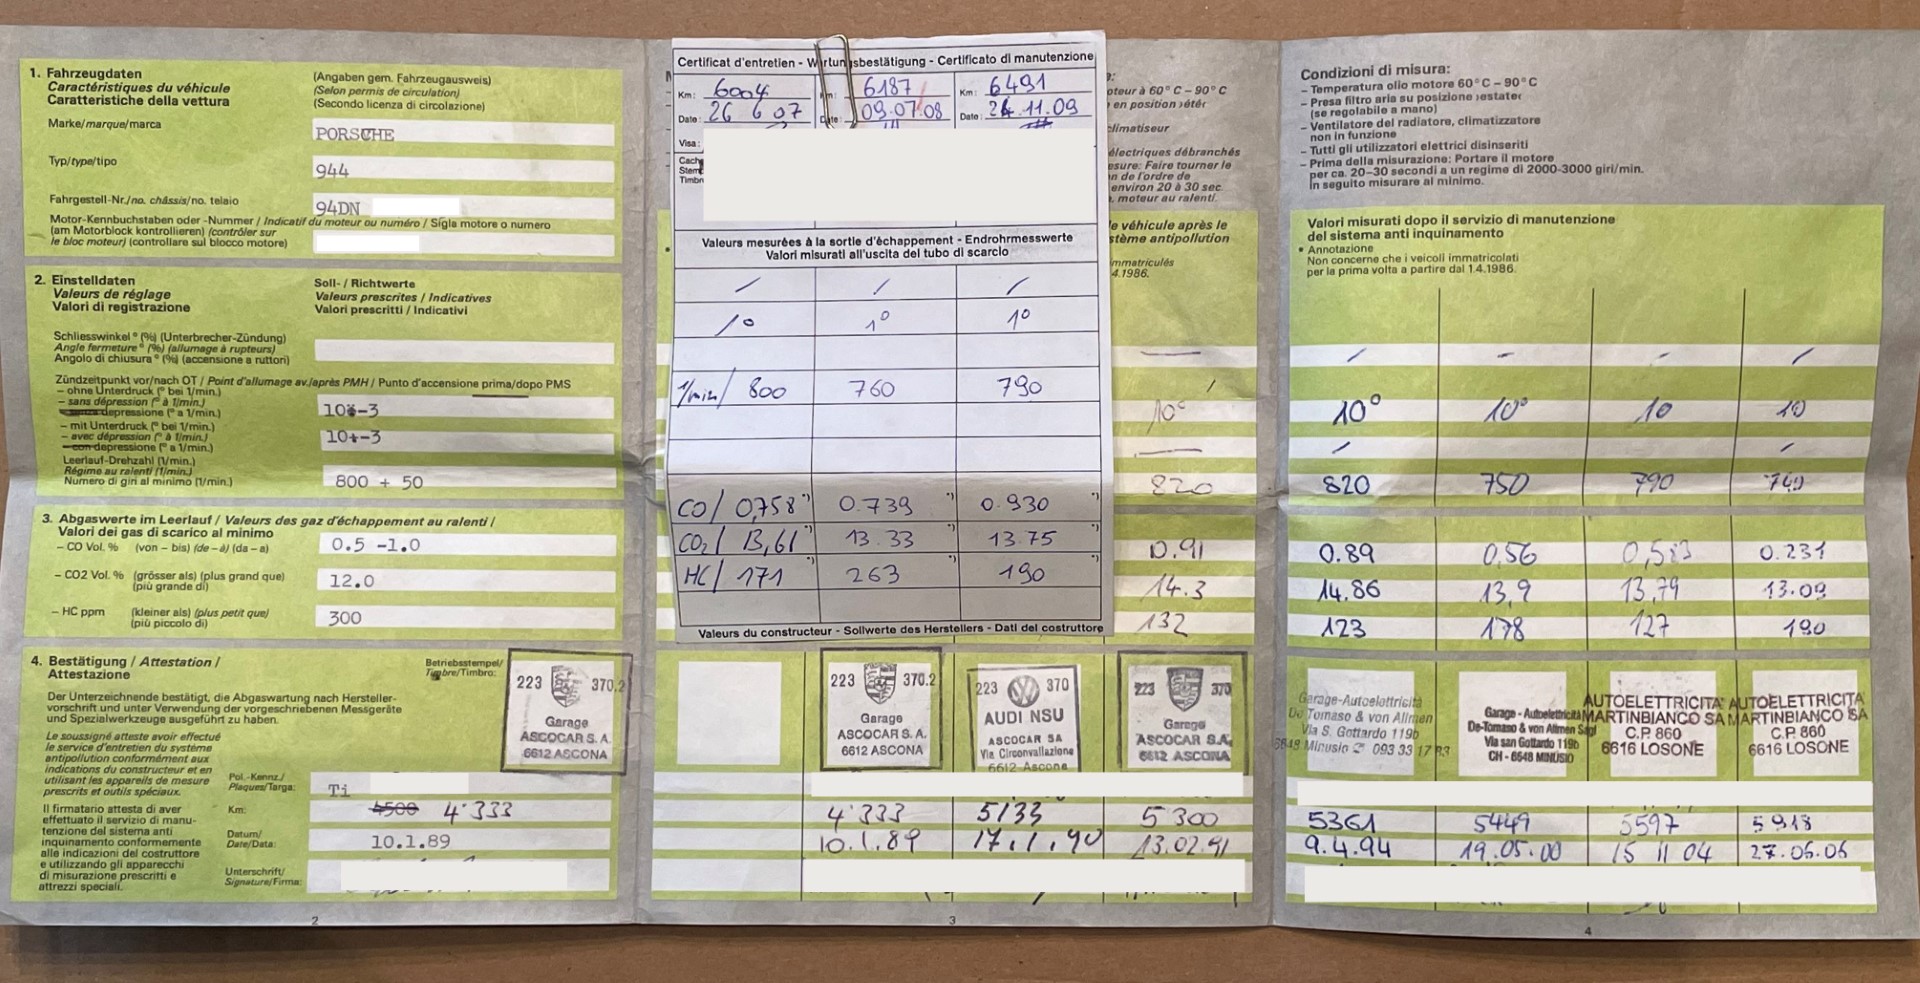 1. Fahrzeugdaten
Caractéristiques du véhicule
Caratteristiche della vettura
(Angaben gem. Fahrzeugausweis)
(Selon permis de circulation)
(Secondo licenza di circolazione)
Marke/marque/marca
PORSCHE
Typ/type/tipo
944
Fahrgestell-Nr./no. châssis/no. telaio
94DN
Motor-Kennbuchstaben oder -Nummer / Indicatif du moteur ou numéro / Sigla motore o numero
(am Motorblock kontrollieren) (contrôler sur
le bloc moteur) (controllare sul blocco motore)
2. Einstelldaten
Valeurs de réglage
Valori di registrazione
Soll- / Richtwerte
Valeurs prescrites / Indicatives
Valori prescritti / Indicativi
Schliesswinkel ° (%) (Unterbrecher-Zündung)
Angle fermeture ° (%) (allumage à rupteurs)
Angolo di chiusura ° (%) (accensione a ruttori)
Zündzeitpunkt vor/nach OT / Point d'allumage av./après PMH / Punto d'accensione prima/dopo PMS
– ohne Unterdruck (° bei 1/min.)
– sans dépression (° à 1/min.)
depressione (° a 1/min.)
10+-3
– mit Unterdruck (° bei 1/min.)
– avec dépression (° à 1/min.)
– con depressione (° a 1/min.)
10+-3
Leerlauf-Drehzahl (1/min.)
Régime au ralenti (1/min.)
Numero di giri al minimo (1/min.)
800 + 50
3. Abgaswerte im Leerlauf / Valeurs des gaz d'échappement au ralenti /
Valori dei gas di scarico al minimo
– CO Vol. % (von – bis) (de – à) (da – a)
0.5 -1.0
– CO2 Vol. % (grösser als) (plus grand que)
(più grande di)
12.0
– HC ppm (kleiner als) (plus petit que)
(più piccolo di)
300
4. Bestätigung / Attestation /
Attestazione
Betriebsstempel/
Timbre/Timbro:
Der Unterzeichnende bestätigt, die Abgaswartung nach Hersteller-
vorschrift und unter Verwendung der vorgeschriebenen Messgeräte
und Spezialwerkzeuge ausgeführt zu haben.
Le soussigné atteste avoir effectué
le service d'entretien du système
antipollution conformément aux
indications du constructeur et en
utilisant les appareils de mesure
prescrits et outils spéciaux.
Il firmatario attesta di aver
effettuato il servizio di manu-
tenzione del sistema anti
inquinamento conformemente
alle indicazioni del costruttore
e utilizzando gli apparecchi
di misurazione prescritti e
attrezzi speciali.
223 370.2
Garage
ASCOCAR S. A.
6612 ASCONA
Pol.-Kennz./
Plaques/Targa:
Ti
Km:
4500 4'333
Datum/
Date/Data:
10.1.89
Unterschrift/
Signature/Firma:
2
Certificat d'entretien - Wartungsbestätigung - Certificato di manutenzione
Km: 6004 6187 Km: 6491
Date: 26 6 07 Date: 09.07.08 Date: 24.11.09
Visa:
Timbr
Valeurs mesurées à la sortie d'échappement - Endrohrmesswerte
Valori misurati all'uscita del tubo di scarcio
/ / /
1° 1° 1°
1/min/ 800 760 790
CO/ 0,758 *) 0.739 *) 0.930 *)
CO2/ 13,61 *) 13.33 *) 13.75 *)
HC/ 171 *) 263 *) 190 *)
Valeurs du constructeur - Sollwerte des Herstellers - Dati del costruttore
oteur à 60° C – 90° C
en position
climatiseur
électriques débranchés
esure: Faire tourner le
n de l'ordre de
environ 20 à 30 sec.
, moteur au ralenti.
le véhicule après le
stème antipollution
mmatriculés
4.1986.
10°
820
0.91
14.3
132
223 370.2
Garage
ASCOCAR S. A.
6612 ASCONA
223 370
AUDI NSU
ASCOCAR SA
Via Circonvallazione
6612 Ascona
223 370
Garage
ASCOCAR S.A.
6612 ASCONA
4'333 5133 5300
10.1.89 17.1.90 13.02.91
3
Condizioni di misura:
– Temperatura olio motore 60° C – 90° C
– Presa filtro aria su posizione »estate«
(se regolabile a mano)
– Ventilatore del radiatore, climatizzatore
non in funzione
– Tutti gli utilizzatori elettrici disinseriti
– Prima della misurazione: Portare il motore
per ca. 20–30 secondi a un regime di 2000-3000 giri/min.
In seguito misurare al minimo.
Valori misurati dopo il servizio di manutenzione
del sistema anti inquinamento
* Annotazione
Non concerne che i veicoli immatricolati
per la prima volta a partire dal 1.4.1986.
/ - - /
10° 10° 10 10
/ /
820 750 790 740
0.89 0,56 0.231
14.86 13,9 13,79 13.09
123 178 127 190
Garage-Autoelettricità
De Tomaso & von Allmen
Via S. Gottardo 119b
6648 Minusio 093 33 17 73
Garage - Autoelettricità
De-Tomaso & von Allmen Sagl
Via san Gottardo 119b
CH - 6648 MINUSIO
AUTOELETTRICITA'
MARTINBIANCO SA
C.P. 860
6616 LOSONE
AUTOELETTRICITA
MARTINBIANCO SA
C.P. 860
6616 LOSONE
5361 5449 5597 5918
9.4.94 19.05.00 15 11 04 27.06.06
4